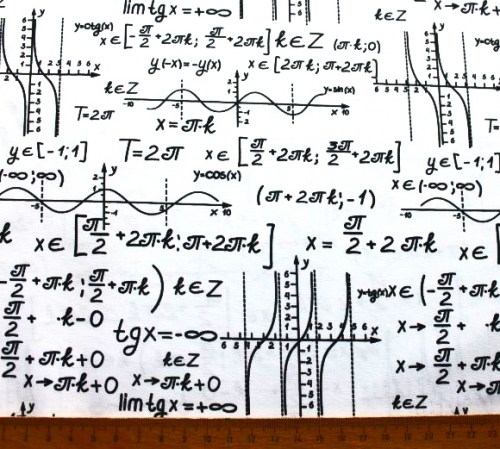 lim tg x = +∞
k∈Z
x→π·k+
y=ctg(x)
x∈[-π/2+2πk; π/2+2πk] k∈Z (π·k;0)
y(-x)=-y(x)
x∈[2πk; π+2πk]
k∈Z
y=sin(x)
T=2π
x=π·k
y∈[-1;1]
T=2π
x∈[π/2+2πk; 3π/2+2πk]
y∈[-1;1]
(-∞;∞)
y=cos(x)
(π+2πk;-1)
x∈(-∞;∞)
k
x∈[π/2+2π·k;π+2π·k]
x=π/2+2π·k
x∈[
-π/2+π·k;π/2+π·k)
k∈Z
y=tg(x)
x∈(-π/2+π
π/2+ ·k-0
tgx=-∞
x→π/2+ ·k
π/2+π·k+0
k∈Z
x→π/2+π·k
x→π·k+0
x→π·k+0
x→π·k
lim tg x=+∞
k∈Z